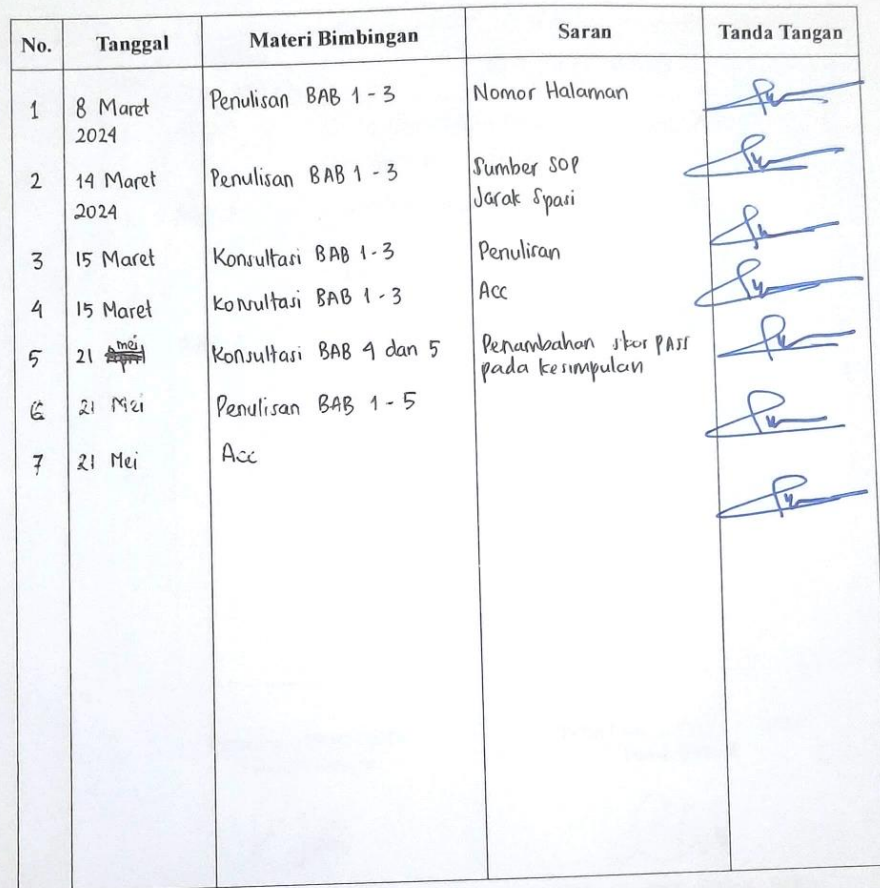 No. Tanggal Materi Bimbingan Saran Tanda Tangan
1 8 Maret Penulisan BAB 1 - 3 Nomor Halaman
2024
2 14 Maret Penulisan BAB 1 - 3 Sumber SOP
2024 Jarak Spasi
3 15 Maret Konsultasi BAB 1 - 3 Penulisan
4 15 Maret Konsultasi BAB 1 - 3 Acc
5 21 mei Konsultasi BAB 4 dan 5 Penambahan skor PASS
pada kesimpulan
6 21 Mei Penulisan BAB 1 - 5
7 21 Mei Acc